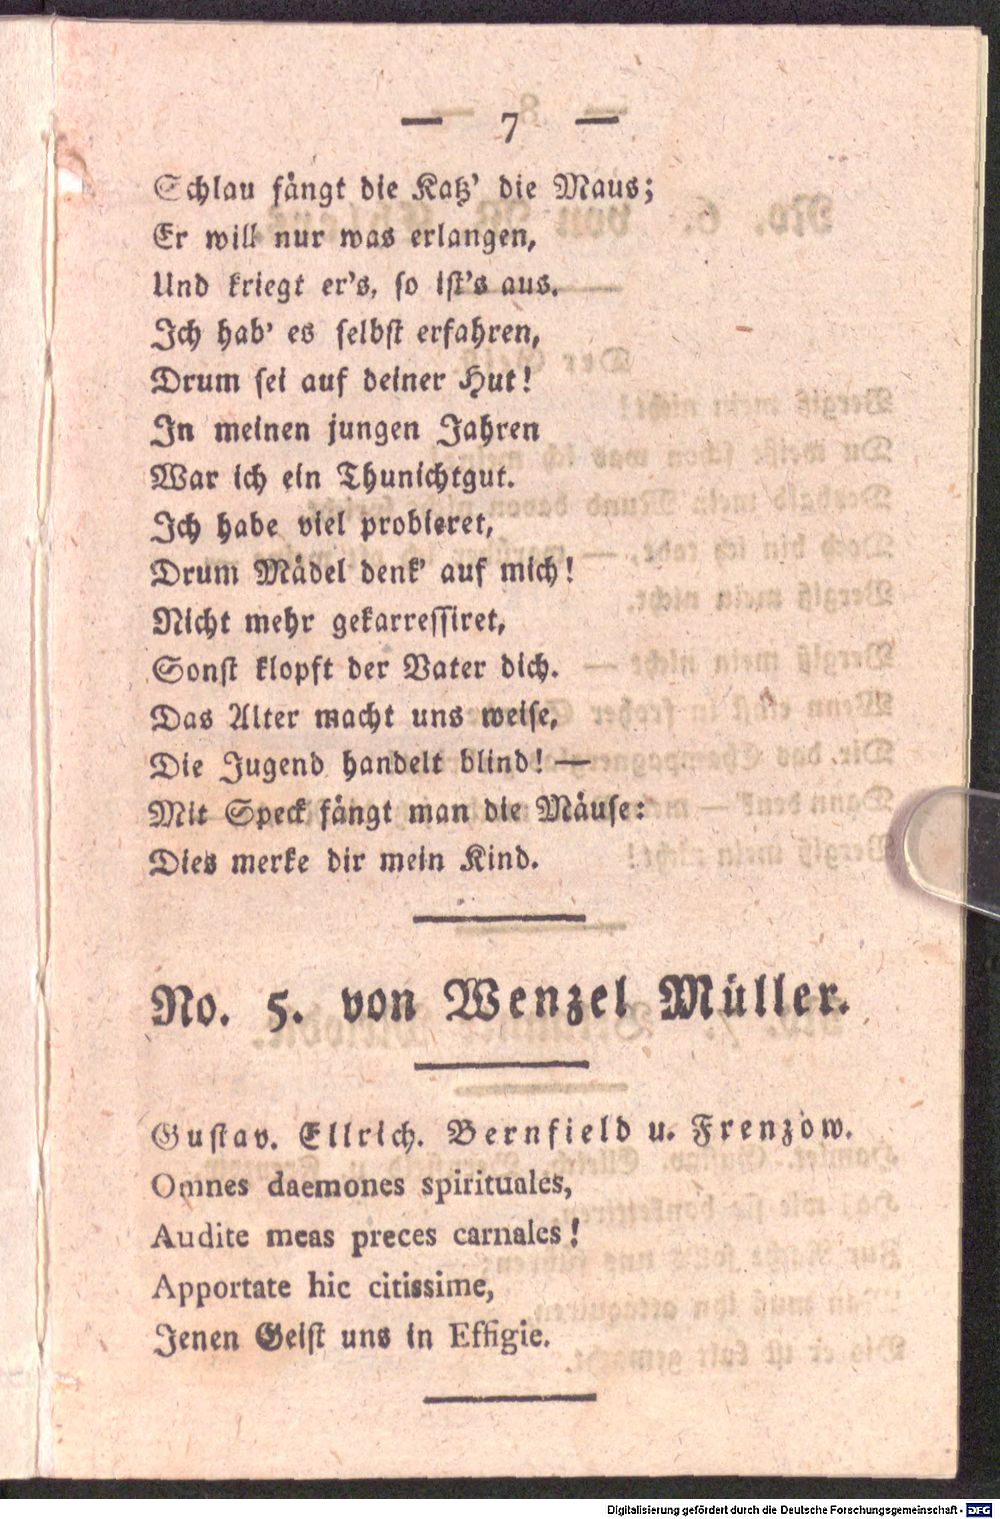 — 7 —
Schlau fängt die Katz' die Maus;
Er will nur was erlangen,
Und kriegt er's, so ist's aus.
Ich hab' es selbst erfahren,
Drum sei auf deiner Hut!
In meinen jungen Jahren
War ich ein Thunichtgut.
Ich habe viel probieret,
Drum Mädel denk' auf mich!
Nicht mehr gekarressiret,
Sonst klopft der Vater dich.
Das Alter macht uns weise,
Die Jugend handelt blind! —
Mit Speck fängt man die Mäuse:
Dies merke dir mein Kind.
No. 5. von Wenzel Müller.
Gustav. Ellrich. Bernfield u. Frenzow.
Omnes daemones spirituales,
Audite meas preces carnales!
Apportate hic citissime,
Jenen Geist uns in Effigie.
Digitalisierung gefördert durch die Deutsche Forschungsgemeinschaft - DFG